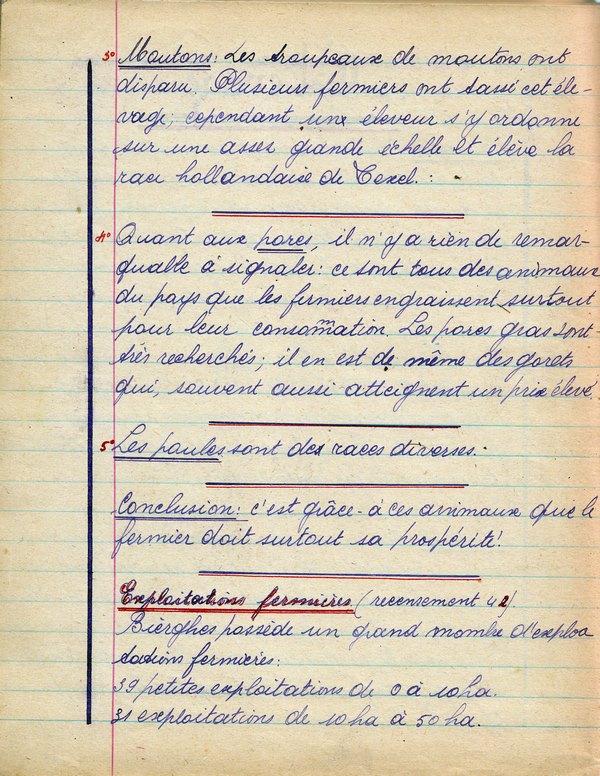 3° Moutons: Les troupeaux de moutons ont
disparu. Plusieurs fermiers ont tassé cet éle-
vage; cependant une éleveur s'y ordonne
sur une asses grande échelle et élève la
race hollandaise de Texel.:
4° Quant aux porcs, il n'y a rien de remar-
quable à signaler: ce sont tous des animaux
du pays que les fermiers engraissent surtout
pour leur consommation. Les porcs gras sont
très recherchés; il en est de même des gorets
qui, souvent aussi atteignent un prix élevé.
5° Les poules sont des races diverses.
Conclusion: c'est grâce-à ces animaux que le
fermier doit surtout sa prospérité!
Exploitations fermières (recensement 42)
Bierghes possède un grand nombre d'exploi
tations fermières:
39 petites exploitations de 0 à 10ha.
31 exploitations de 10ha à 50ha.